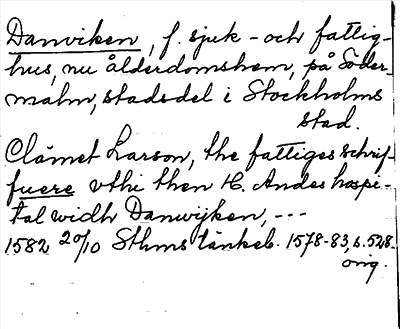 Danviken, f. sjuk- och fattig-
hus, nu ålderdomshem, på Söder-
malm, stadsdel i Stockholms
stad.
Clåmet Larson, the fattiges schrif-
fuere vthi then H. Andes hospi-
tal widh Danwijken, ---
1582 20/10 Sthms tänkeb. 1578-83, s. 528.
orig.